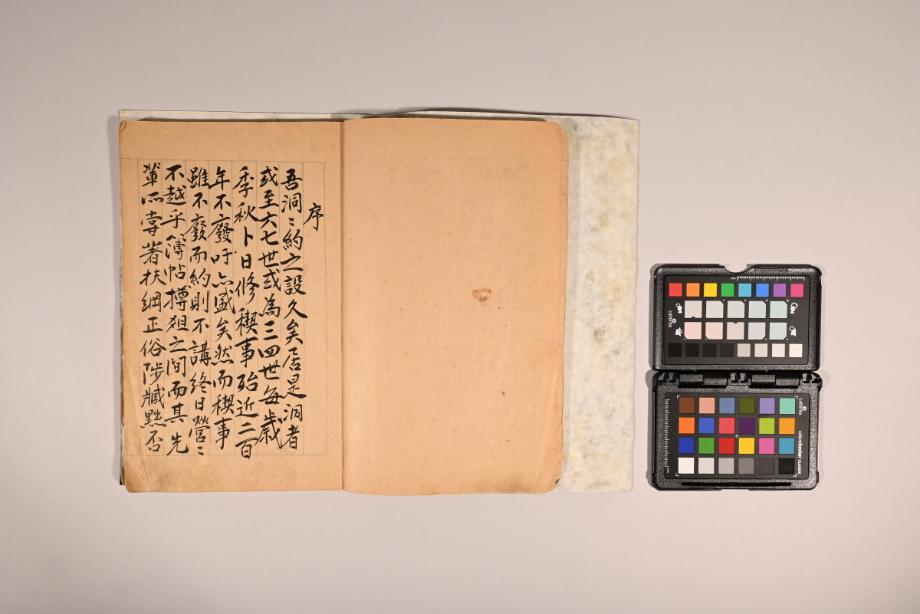 序
吾洞〻約之設久矣居是洞者
或至六七世或為三四世每歲
季秋卜日修稧事殆近二百
年不廢吁亦盛矣然而稧事
雖不廢而約則不講終日營〻
不越乎簿帖樽俎之間而其先
輩所嘗著扶綱正俗陟臧黜否